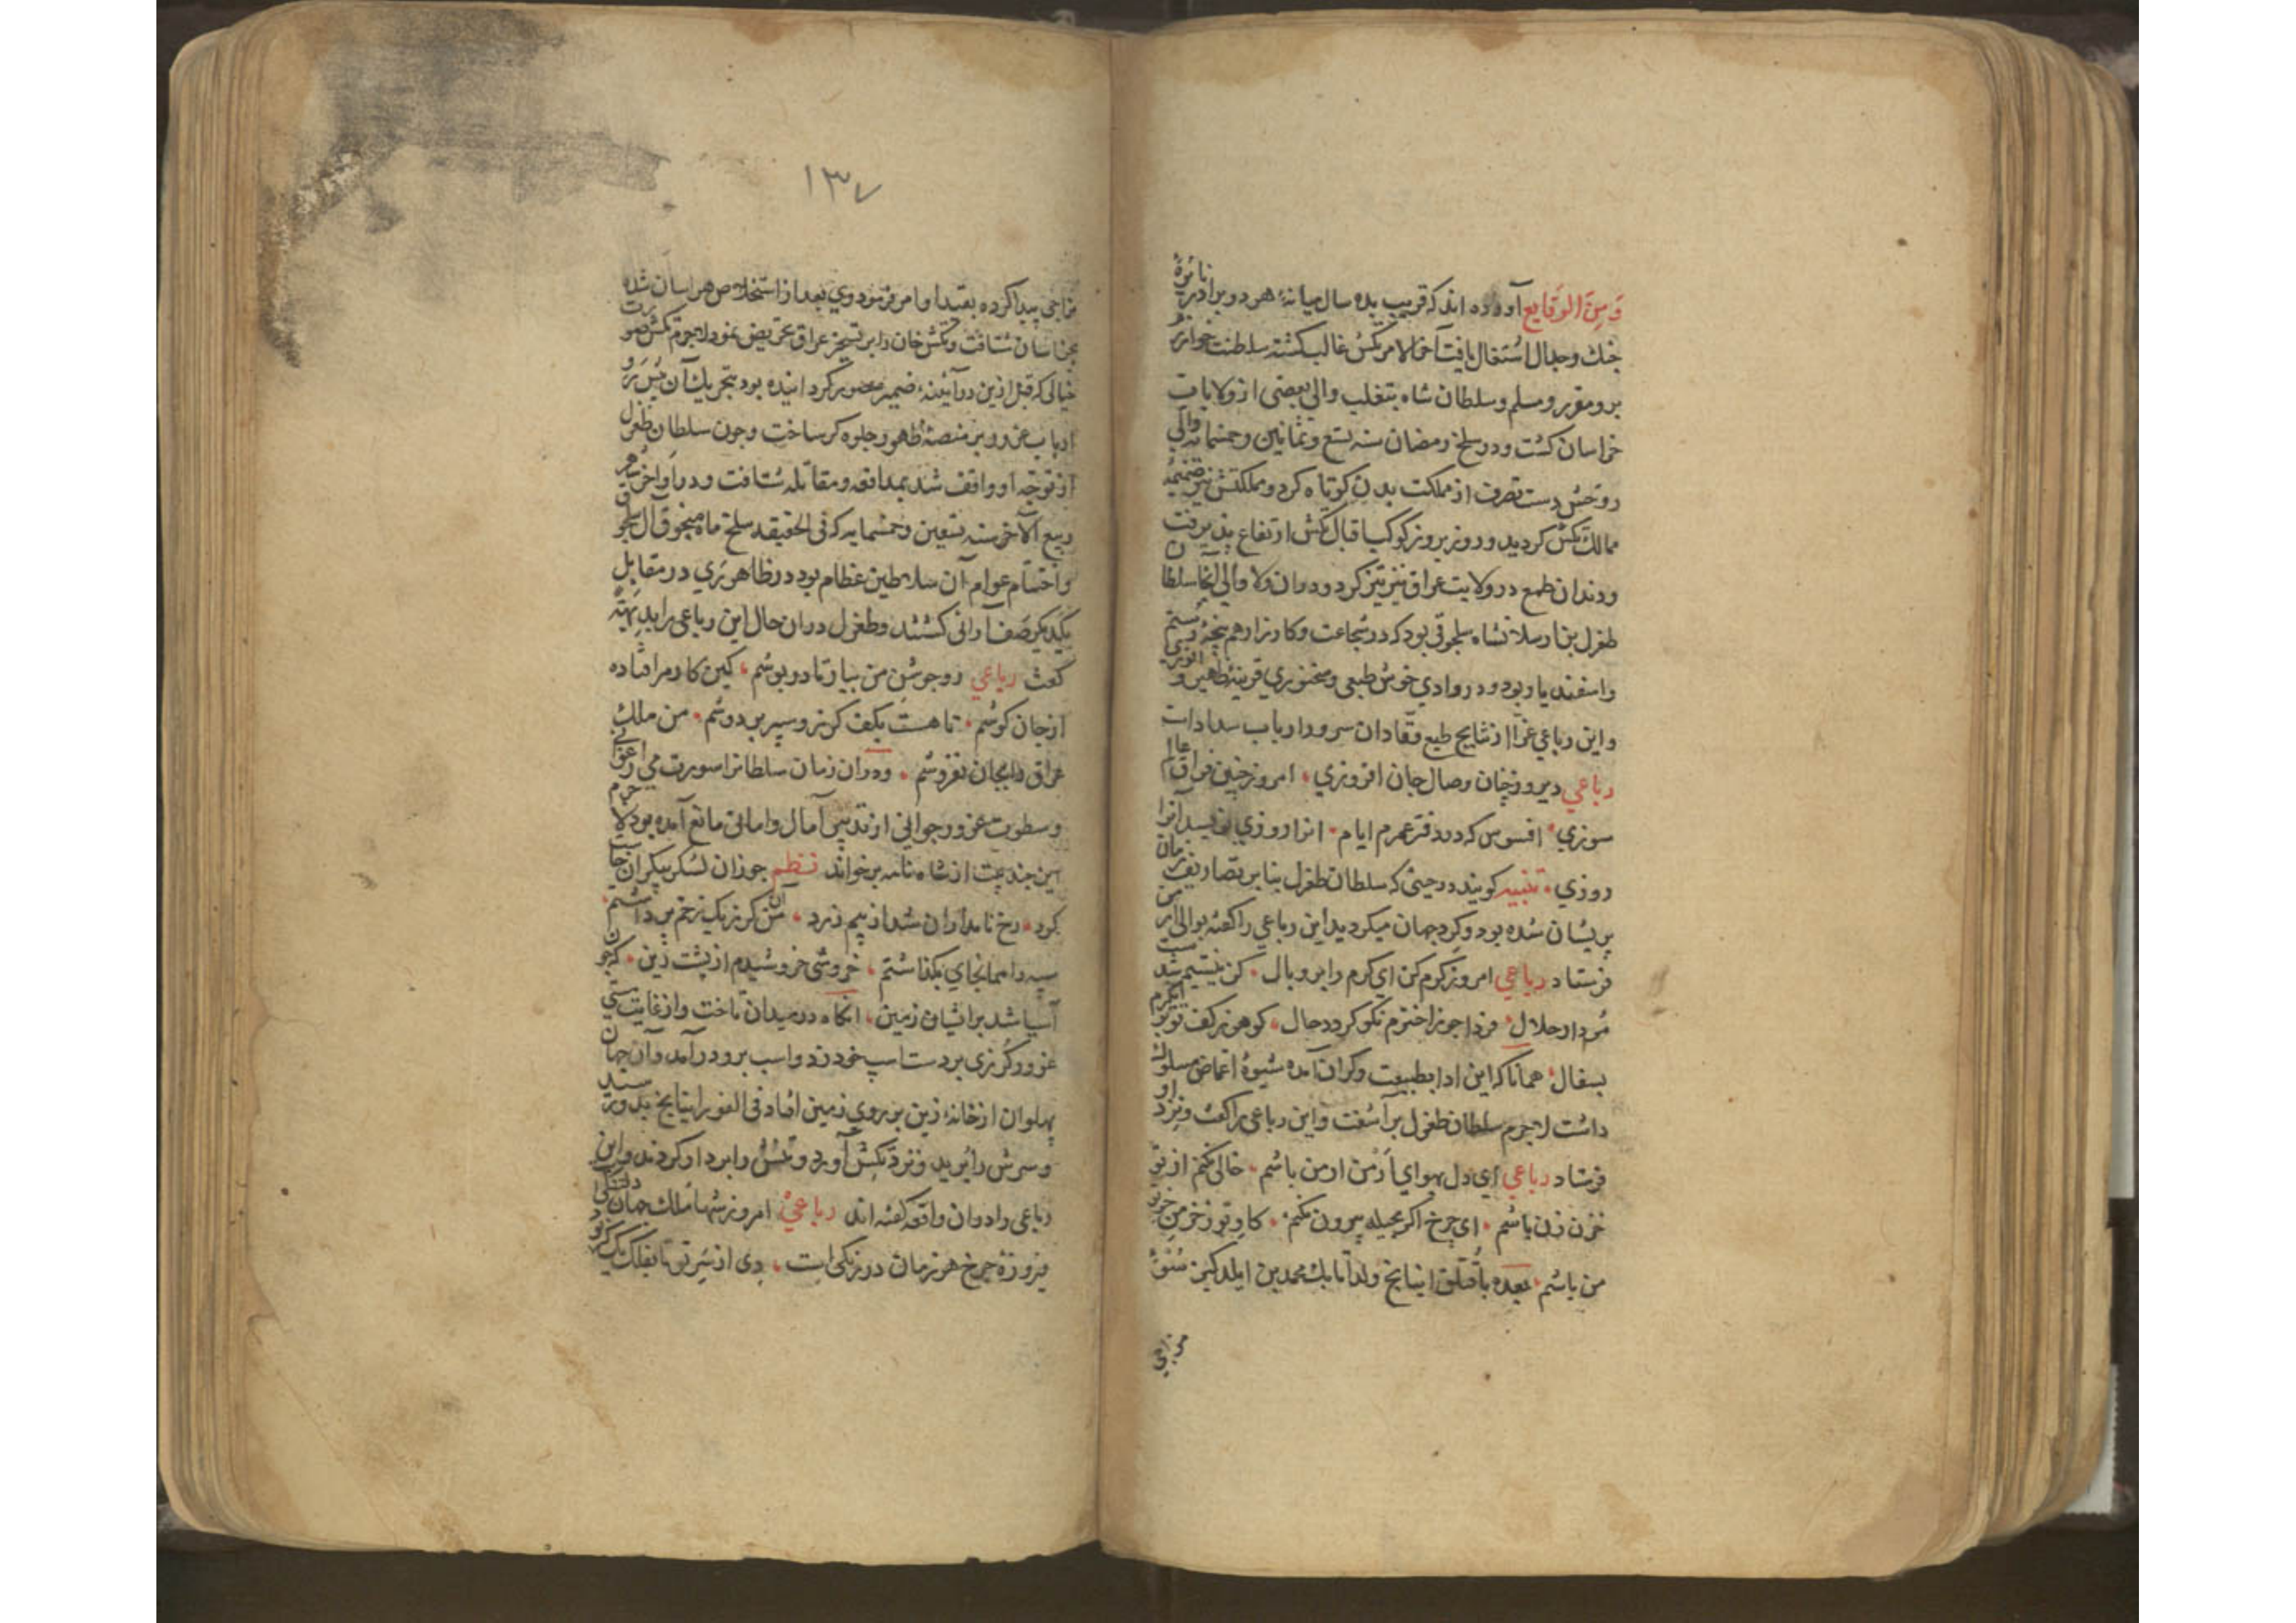 وَمِنَ الوَقایع آورده اند که قریب بده سال میانهٔ هر دو برادر نائرهٔ
جنك وجدال اشتغال یافت آخر الامر تکش غالب کشته سلطنت خوارزم
برو مقرر ومسلم وسلطان شاه بتغلب والی بعضی از ولایات
خراسان کشت ودر سلخ رمضان سنه تسع وثمانین وخمسمایه والی
روحش دست تصرف از مملکت بدن کوتاه کرد ومملکتش نیز ضمیمهٔ
ممالك تکش کردید وروز بروز کوکب اقبال تکش ارتفاع پذیرفت
ودندان طمع در ولایت عراق نیز تیز کرد ودران ولا والی آنجا سلطان
طغرل بن ارسلانشاه سلجوقی بود که در شجاعت وکارزار هم پنجهٔ رستم
واسفندیار بود ودر وادی خوش طبعی وسخنوری قرینهٔ ظهیر و انوری
واین رباعی غرا از نتایج طبع وقادان سرور ارباب سعادات
رباعی دیروز چنان وصال جان افروزی امروز چنین فراق عالم
سوزی افسوس که در دفتر عمرم ایام انرا روزی نویسد انرا
روزی تنبیه کویند در حینی که سلطان طغرل بنا بر تصاریف زمان
پریشان شده بود وکرد جهان میکردید این رباعی را کفته بوالی
فرستاد رباعی امروز کرم کن ای کرم را پر وبال کز نیستیم شدست
مردار حلال فردا چو ز اخترم نکو کردد حال کوهر ز کفت توبر انکرم
بسفال همانا که این ادا بطبیعت وکران آمده شیوهٔ اغماض مسلوك
داشت لاجرم سلطان طغرل برآشفت واین رباعی را کفت ونزد او
فرستاد رباعی ای دل بهوای ارمن ار من باشم خالی نکنم از تو
خزن زن باشم ای چرخ اکر بحیله بیرون نکنم کاو تو ز خرمن خر
من باشم بعده باقتلق اینانج ولد اتابك محمد بن ایلدکیز
مزاجی
۱۳۷
مزاجی پیدا کرده بقید او امر فرمود ووی بعد از استخلاص هراسان شده
بخراسان شتافت وتکش خان را بر تسخیر عراق تحریض نمود لاجرم تکش صورت
خیالی که قبل ازین در آئینهٔ ضمیر مصور کردانیده بود بتحریك آن سرور
ارباب غرور بر منصهٔ ظهور جلوه کر ساخت وچون سلطان طغرل
از توجه او واقف شد بمدافعه ومقاتله شتافت ودر اواخر شهر
ربیع الآخر سنه تسعین وخمسمایه که فی الحقیقه سلخ ماه منجوق آل سلجوق
واختتام عوام آن سلاطین عظام بود در ظاهر ری در مقابل
یکدیکر صف آرائی کشتند وطغرل دران حال این رباعی را بدیهة
کفت رباعی رو جوشن من بیار تا درپوشم کین کار مرا فتاده
از جان کوشم تا هست بکف کرز وسپر بر دوشم من ملك
عراق را بجان نفروشم ودران زمان سلطانرا سورت می ارغوانی
وسطوت غرور جوانی از تدبیر آمال وامانی مانع آمده بود لاجرم
این چند بیت از شاه نامه برخواند نظم چو زان لشکر بیکران خاست
کرد رخ نامداران شد از بیم زرد من آن کرز یک زخم برداشتم
سپه را همانجای بکذاشتم خروشی خروشیدم از پشت زین که چون
آسیا شد بر ایشان زمین انکاه در میدان تاخت واز غایت مستی
غرور کرزی بر دست اسپ خود زد واسب برو در آمد وآن جهان
پهلوان از خانهٔ زین بر روی زمین افتاد فی الفور اینانج بدو رسید
وسرش را برید ونزد تکش آورد وتنش را بر دار کردند واین
رباعی را دران واقعه کفته اند رباعی امروز شها ملك جهان دلتنکی است
فیروزهٔ چرخ هر زمان در رنکی است دی از سر تو تا بفلك یک کز بود